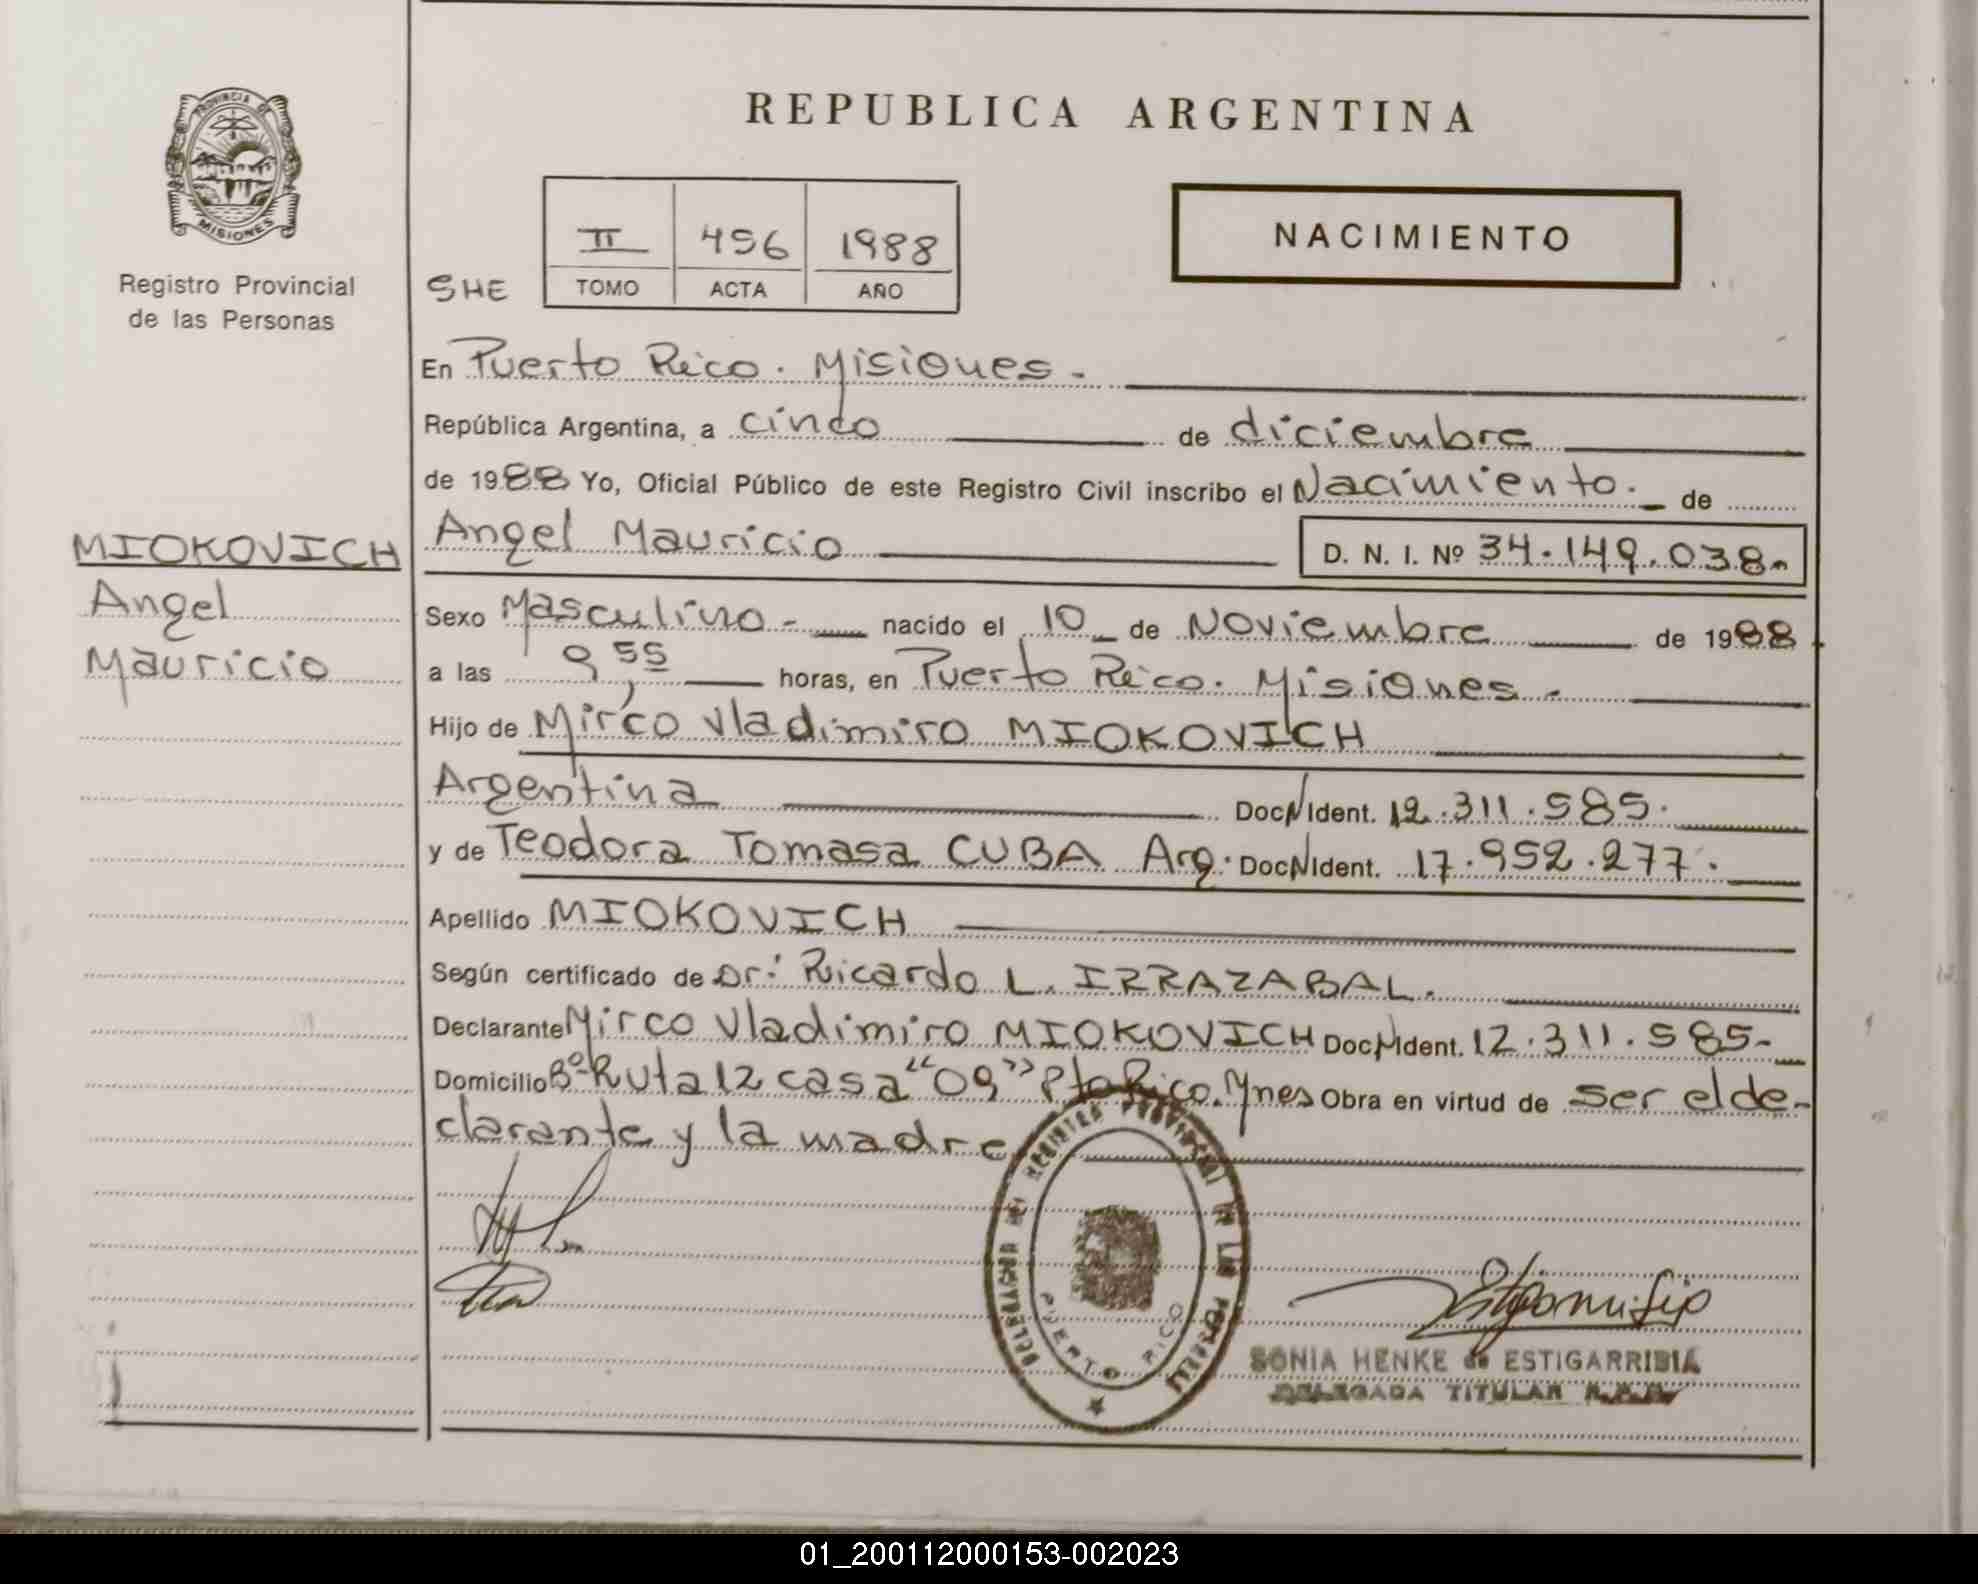 REPUBLICA ARGENTINA
PROVINCIA DE
MISIONES
Registro Provincial
de las Personas
NACIMIENTO
II 456 1988
SHE TOMO ACTA AÑO
En Puerto Rico. Misiones.-
República Argentina, a cinco de diciembre
de 1988 Yo, Oficial Público de este Registro Civil inscribo el Nacimiento. de
MIOKOVICH
Angel
Mauricio
Angel Mauricio D. N. I. Nº 34.149.038
Sexo Masculino - nacido el 10 de Noviembre de 1988
a las 9,55 horas, en Puerto Rico. Misiones.
Hijo de Mirco Vladimiro MIOKOVICH
Argentina Doc N Ident. 12.311.585.
y de Teodora Tomasa CUBA Arg. Doc N Ident. 17.952.277.
Apellido MIOKOVICH
Según certificado de Dr: Ricardo L. IRRAZABAL.
Declarante Mirco Vladimiro MIOKOVICH Doc N Ident. 12.311.585-
Domicilio Bº Ruta 12 casa "09" Pto Rico. Mnes Obra en virtud de ser el de-
clarante y la madre
DELEGACION DEL REGISTRO PROVINCIAL DE LAS PERSONAS
PUERTO RICO
SONIA HENKE de ESTIGARRIBIA
DELEGADA TITULAR R.P.P.
01_200112000153-002023